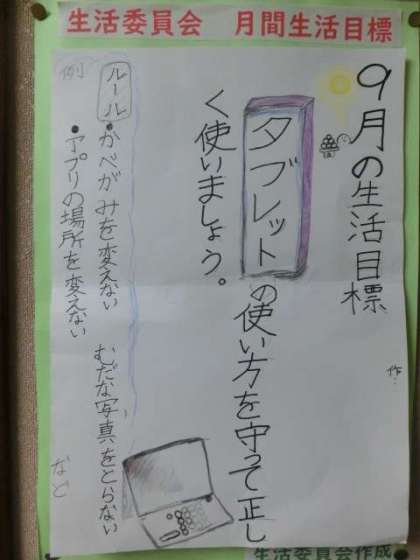 生活委員会　月間生活目標
9月の生活目標
タブレットの使い方を守って正し
く使いましょう。
ルール
例
・かべがみを変えない　むだな写真をとらない
・アプリの場所を変えない
など
作
生活委員会作成